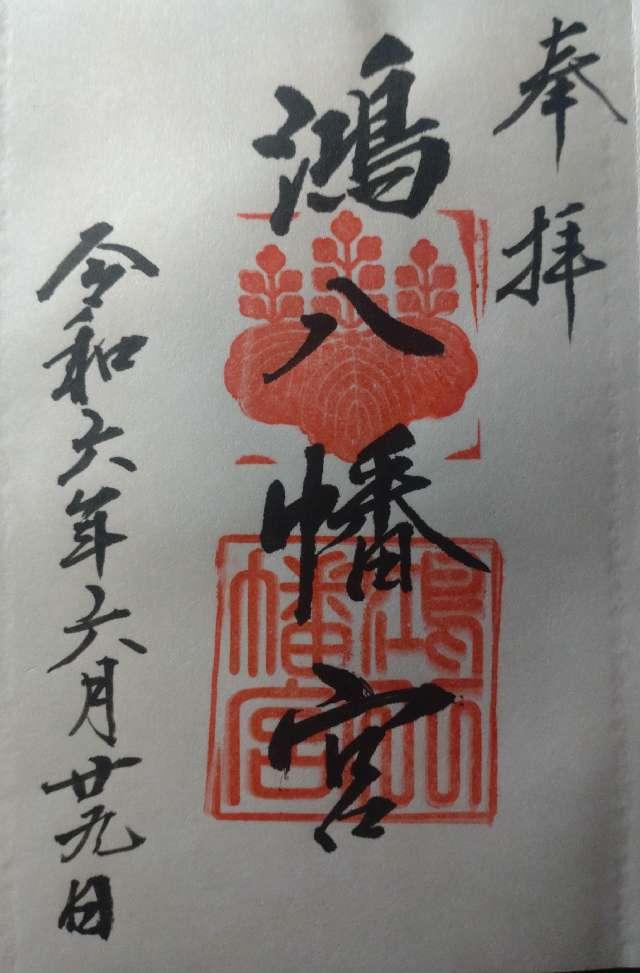 奉拝
鴻八幡宮
鴻八幡宮
令和六年六月廿九日